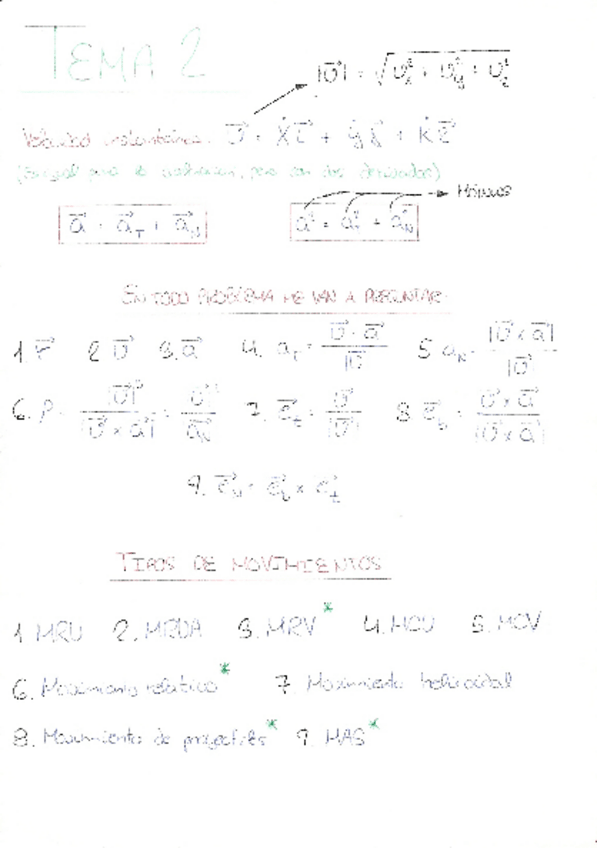 TEMA 2
|v⃗| = √(vx² + vy² + vz²)
Velocidad instantánea: v⃗ = ẋ i⃗ + ẏ j⃗ + k̇ z⃗
(Igual para la aceleración, pero con dos derivadas)
Módulos
a⃗ = a⃗T + a⃗N    a² = aT² + aN²
EN TODO PROBLEMA ME VAN A PREGUNTAR:
1 r⃗  2 v⃗  3. a⃗  4. aT = v⃗ · a⃗ / |v⃗|  5 aN = |v⃗ x a⃗| / |v⃗|
6. ρ = |v⃗|³ / |v⃗ x a⃗| = v² / aN  7. e⃗t = v⃗ / |v⃗|  8. e⃗b = v⃗ x a⃗ / |v⃗ x a⃗|
9. e⃗N = e⃗b x e⃗t
TIPOS DE MOVIMIENTOS
1 MRU  2. MRUA  3. MRV*  4. MCU  5. MCV
6. Movimiento relativo*  7. Movimiento helicoidal
8. Movimiento de proyectiles*  9. MAS*